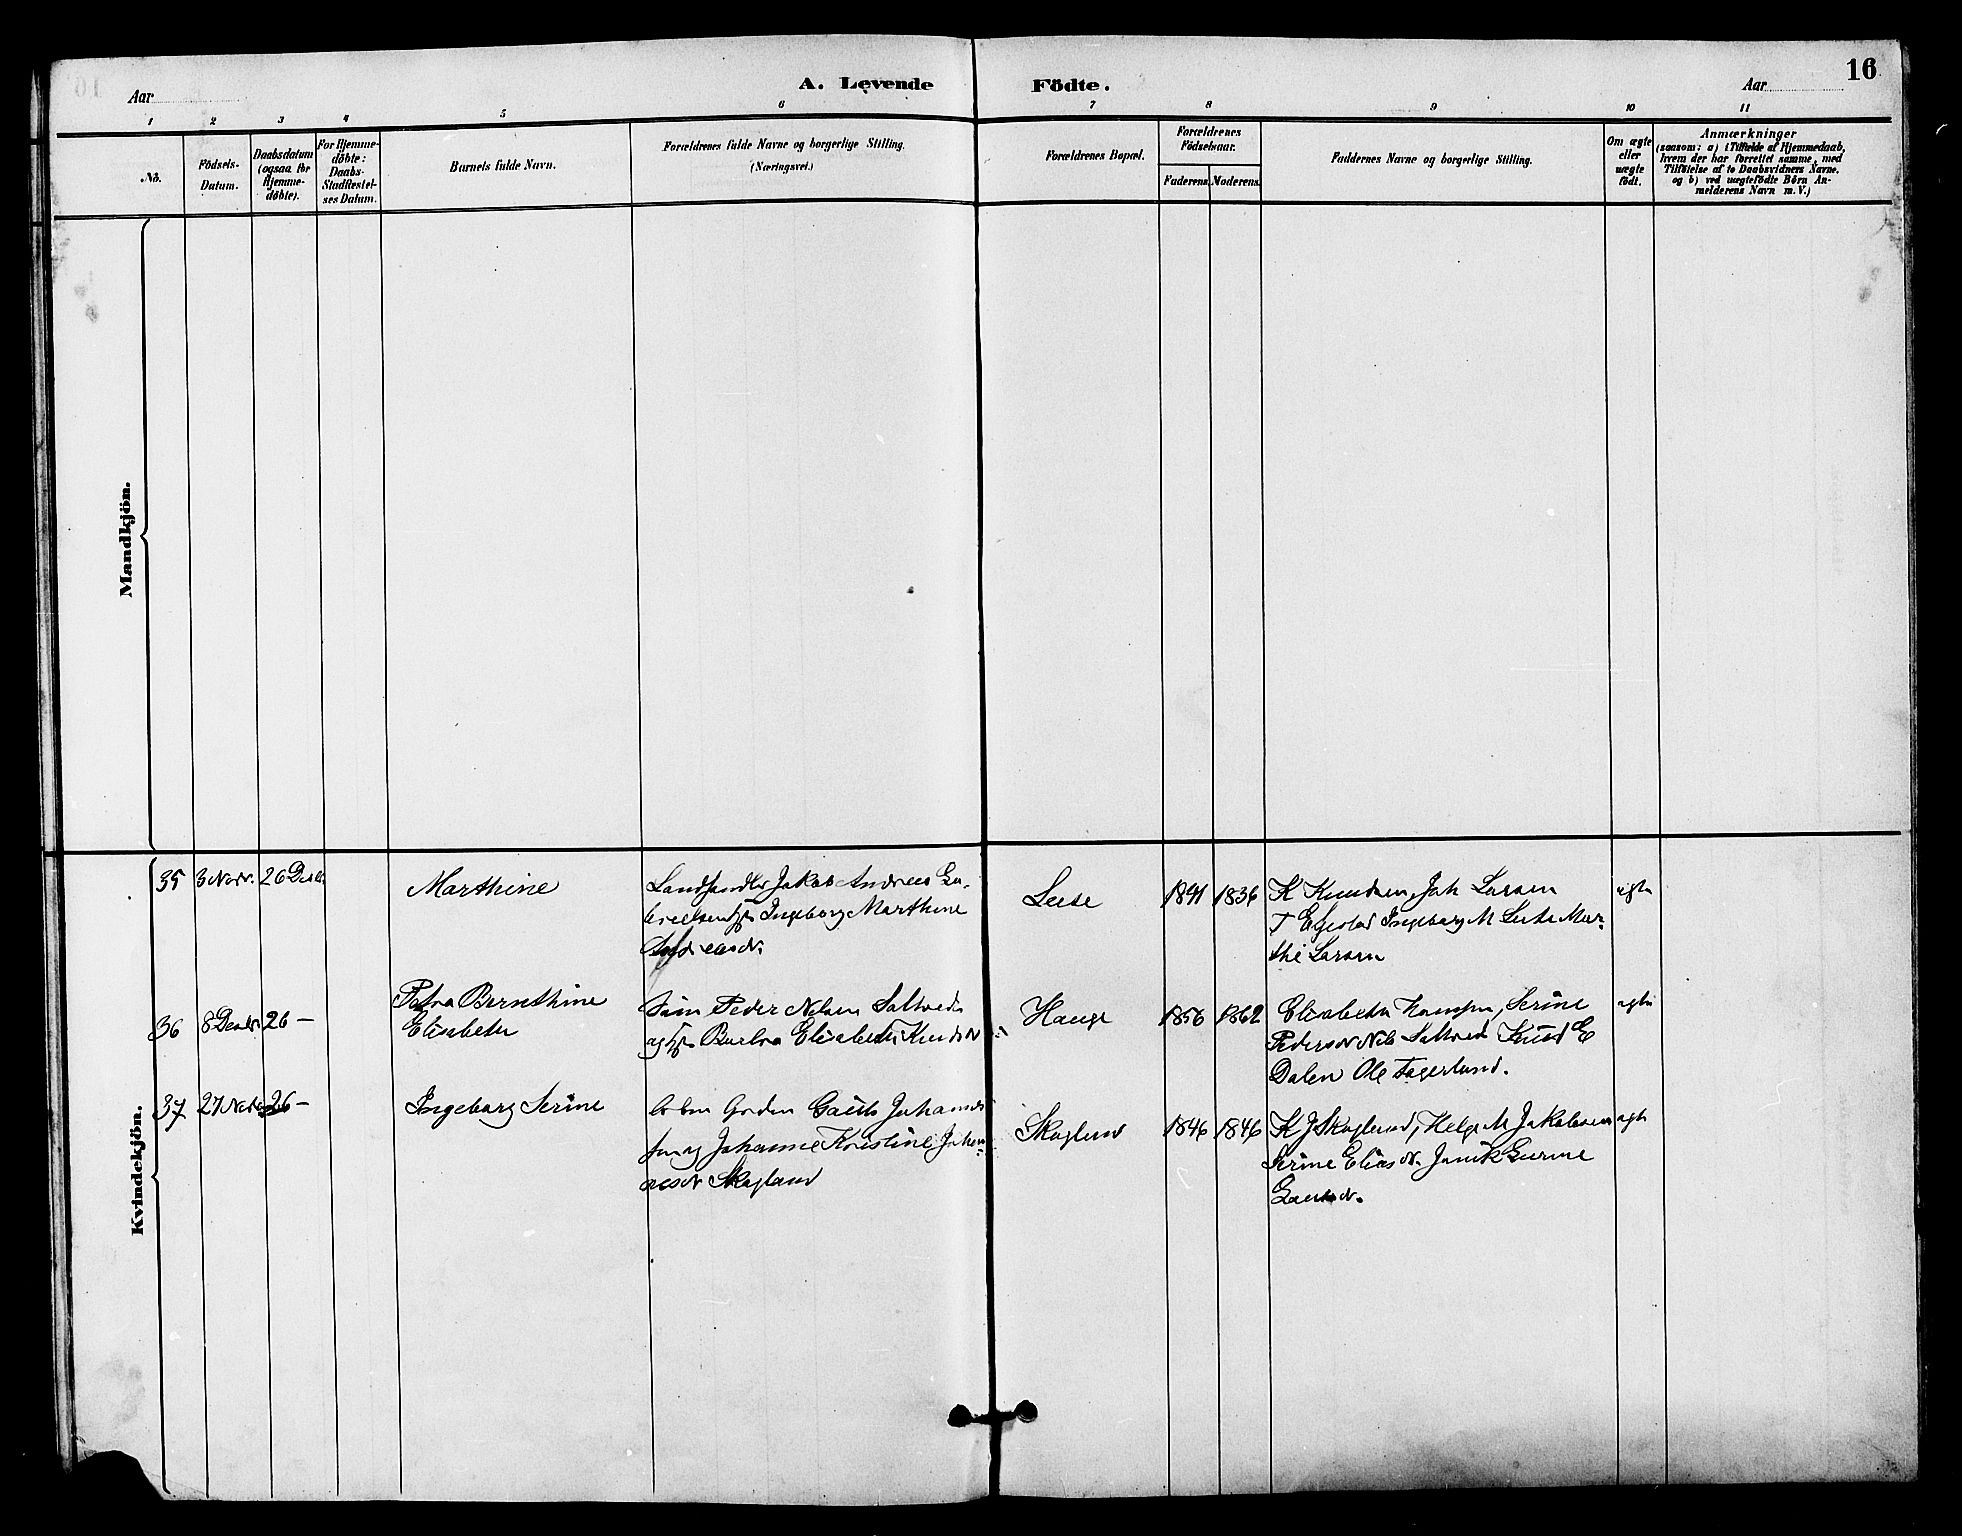 16
A. Levende Födte.
Aar
Aar
1 2 3 4 5 6 7 8 9 10 11
No.
Födsels-
Datum.
Daabsdatum
(ogsaa for
Hjemme-
döbte).
For Hjemme-
döbte:
Daabs-
Stadfæstel-
ses Datum.
Barnets fulde Navn.
Forældrenes fulde Navne og borgerlige Stilling.
(Næringsvei.)
Forældrenes Bopæl.
Forældrenes
Födselsaar.
Faderens. Moderens.
Faddernes Navne og borgerlige Stilling.
Om ægte
eller
uægte
födt.
Anmærkninger
(saasom: a) i Tilfælde af Hjemmedaab,
hvem der har forrettet samme, med
Tilföielse af to Daabsvidners Navne,
og b) ved uægtefödte Börn An-
melderens Navn m. V.)
Mandkjön.
Kvindekjön.
35 3 Novr. 26 Decbr
Marthine
Landhandler Jakob Andreas Ga-
brielsen Ingeborg Marthine
Andreasdr.
1841 1836
K Knudsen, Joh Larsen
T Egestad Ingeborg M Mar-
the Larsen
ægte
36 8 Decbr 26 —
Petra Bernthine
Elisabeth
Peder Nelsen Saltveds
og Barbra Elisabeth Knudsdr
Hauge
1856 1862
Elisabeth Hansen, Serine
Pedersdr Nels Saltved Knud E
Dalen Ole Fagerlund.
ægte
37 27 Novbr 26 —
Ingeborg Serine
Gauts Johannes
sen og Johanne Kristine Johan-
nesdr Skogland
Skoglund
1846 1846
K J Skoglund, Helge M Jakobsen
Serine Eliasdr. Gurine
Gautsdr.
ægte